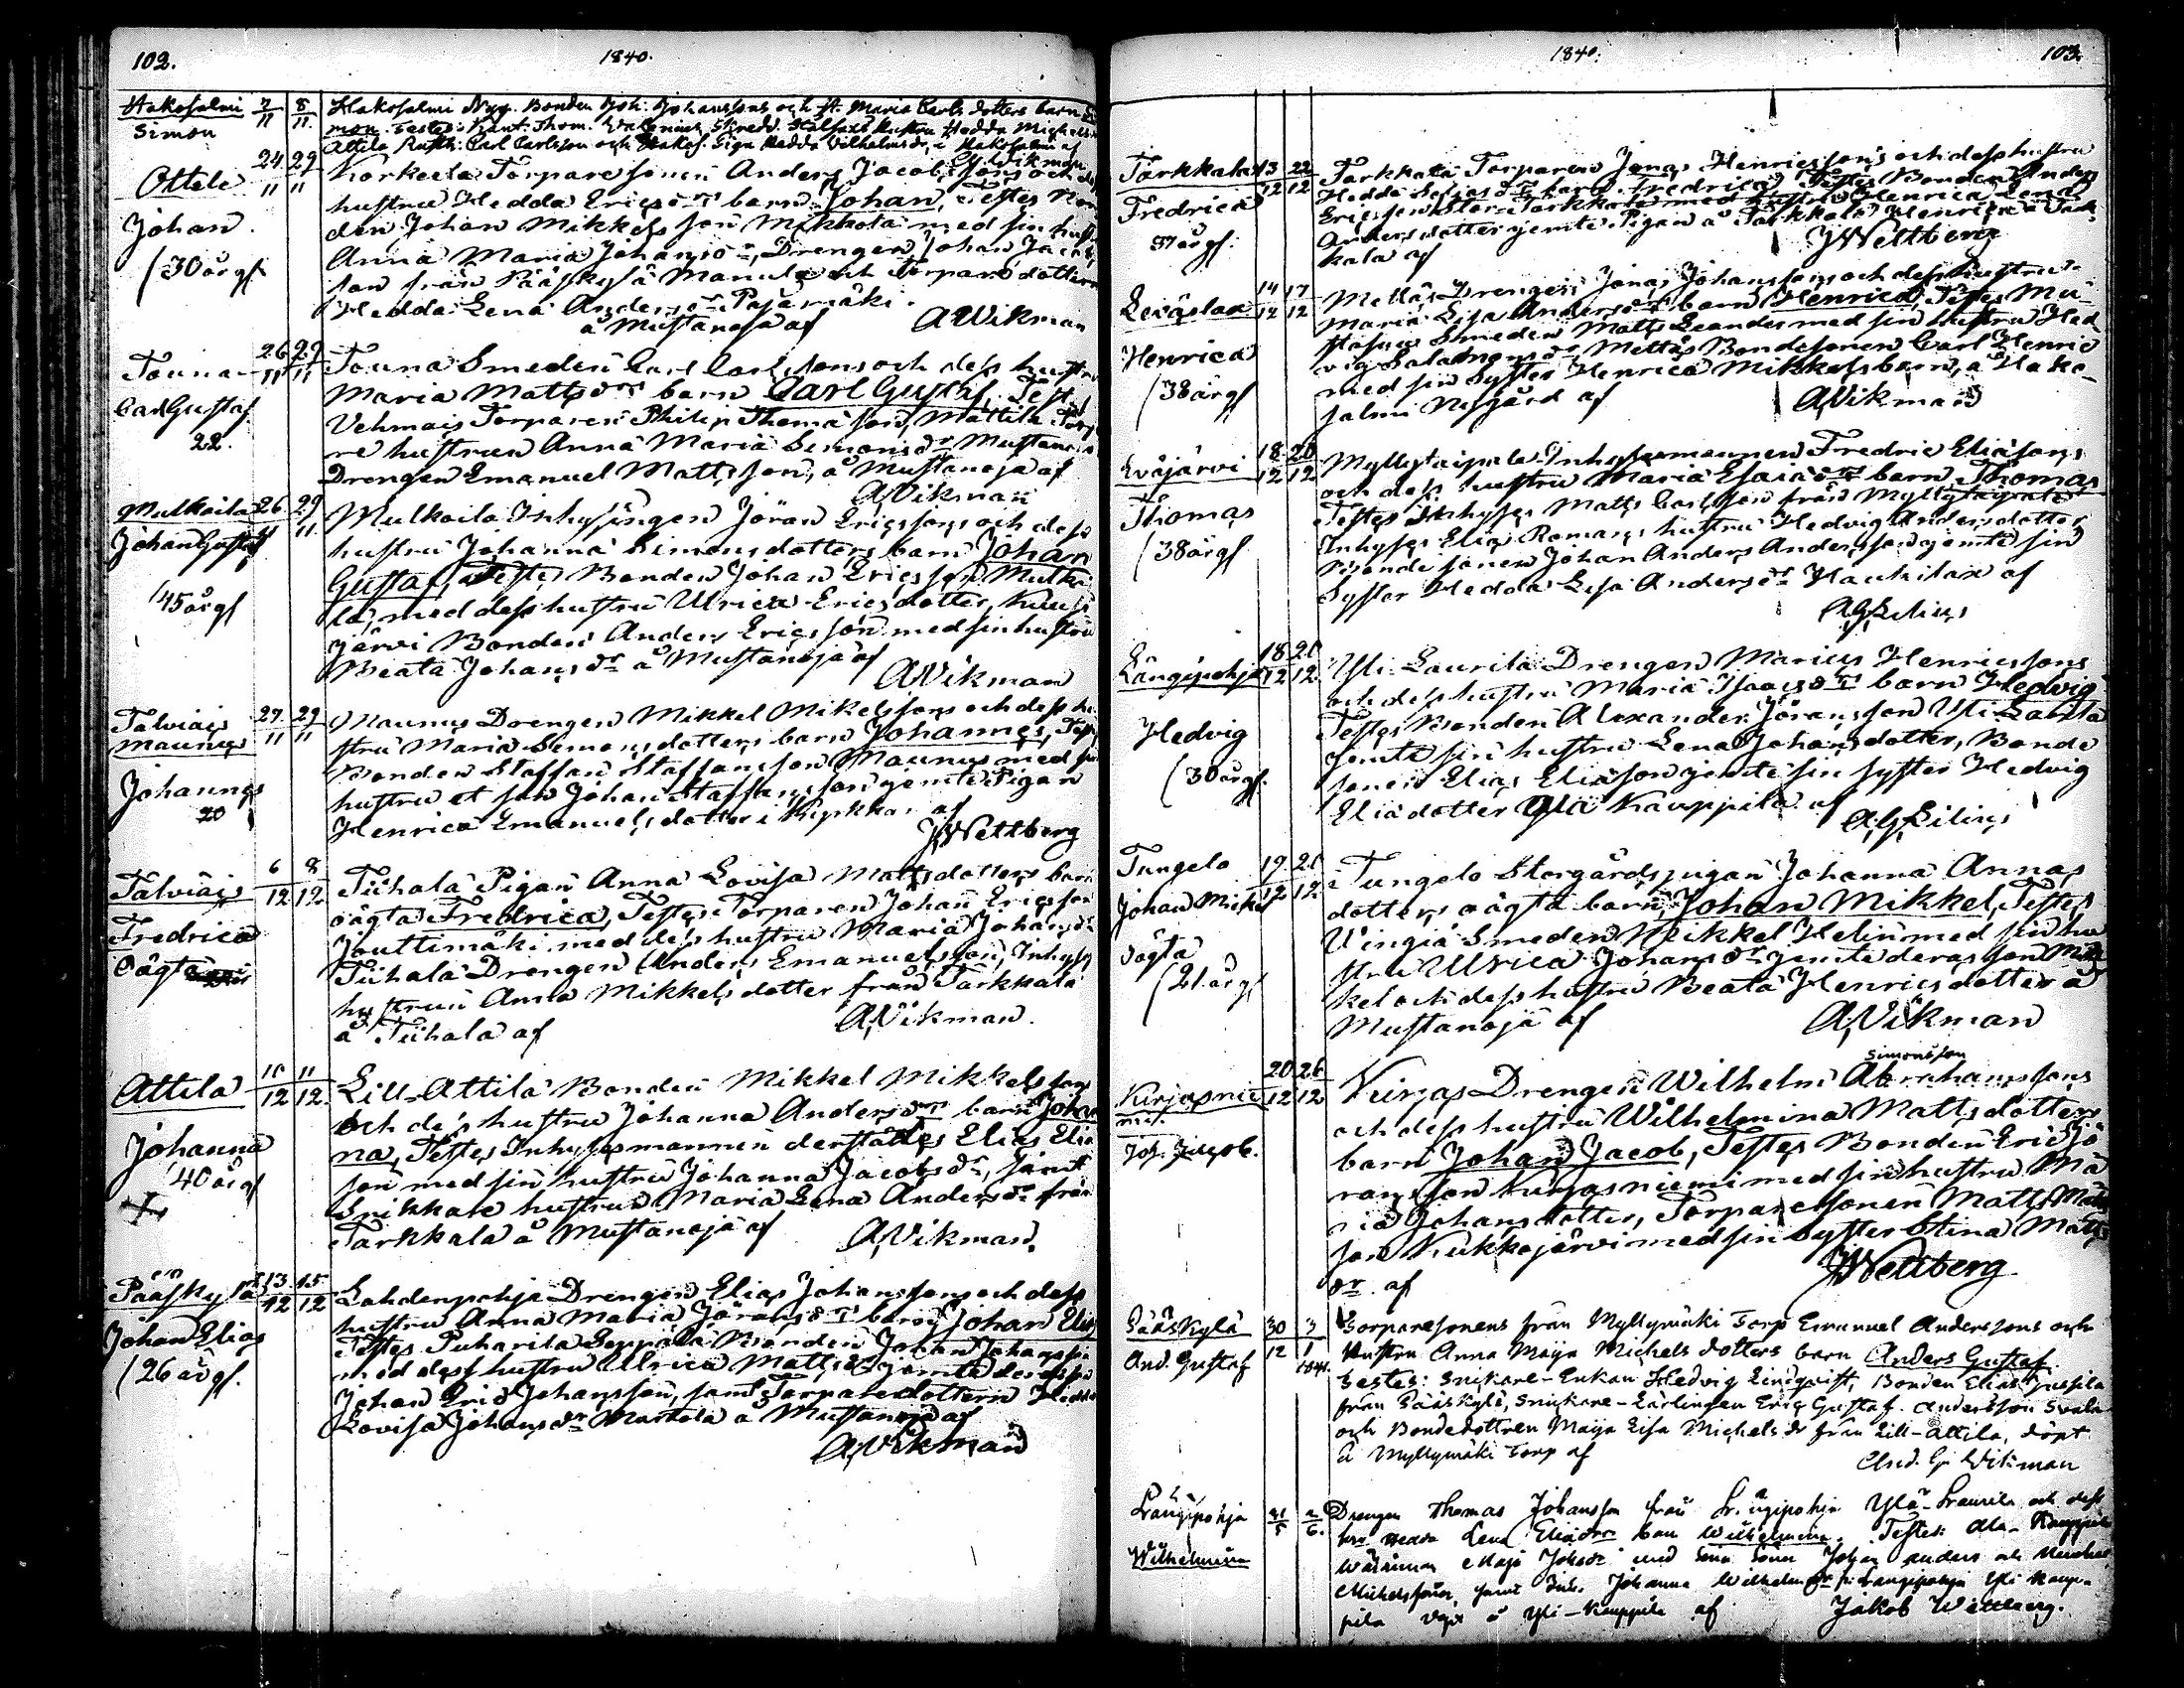 102.
1840.
Hakosalmi 7/11 8/11 Hakosalmi Nyg. Bonden Joh: Johanssons och H. Maria Carls dotters barn Si
Simon mon. Testes: Thom. Skredd. hustru Hedda Michels
Attila Rusth: Carl Carlsson och Hakos. Piga Hedda Vilhelmsdr, i Hakosalmi af
Ottele 24/11 29/11 Korkeela Torpare sonen Anders Jacobssons och dess
hustru Hedda Ericsdrs barn Johan, Testes Bon
Johan den Johan Mikkelsson Mikkola med sin hustru
Anna Maria Johansdr, Drengen Johan Jacobs
/30 årg/ son från Pääskylä Manula och Torpare dottern
Hedda Lena Andersdr Pajamäki.
å Mustanoja af AWikman
Touna 26/11 29/11 Touna Smeden Carl Carlssons och dess hustru
Maria Mattsdrs barn Carl Gustaf, Test.
Carl Gustaf Vehmais Torparen Philip Thomasson, Mattila Torpa
22. re hustrun Anna Maria Simonsdr Mustanoja
Drengen Emanuel Mattsson, å Mustanoja af
AWikman
Mulkoila 26/11 29/11 Mulkoila Inhysingen Jöran Ericssons och dess
Johan Gustaf hustru Johanna Simonsdotters barn Johan
Gustaf, Testes Bonden Johan Ericsson Mulkoi
/45 årg/ la, med dess hustru Ulrica Ericsdotter, Kuus
järvi Bonden Anders Ericsson med sin hustru
Beata Johansdr å Mustanoja af
AWikman
Talviais 27/11 29/11 Maunus Drengen Mikkel Mikelssons och dess hu
Maunus stru Maria Simonsdotters barn Johannes, Test.
Bonden Staffan Staffansson Maunus med sin
Johannes hustru et son Johan Staffansson jemte Pigan
20 Henrica Emanuelsdotter i Kyrkkan af
JWettberg
Talviais 6/12 8/12 Tiihala Pigan Anna Lovisa Mattsdotters barn
oägta Fredrica, Testes Torparen Johan Ericsson
Fredrica Jouttimäki med dess hustru Maria Johansdr
Oägta Tiihala Drengen Anders Emanuelsson, Inhyses
hustrun Anna Mikkelsdotter från Tarkkala
å Tiihala af AWikman.
Attila 10/12 11/12 Lill-Attila Bonden Mikkel Mikkelssons
och dess hustru Johanna Andersdrs barn Johan
Johanna na, Testes Inhysesmannen derstädes Elias Elia
/40 årg/ son med sin hustru Johanna Jacobsdr, samt
Snikkare hustrun Maria Lena Andersdr från
Tarkkala å Mustanoja af AWikman.
Pääskylä 13/12 15/12 Lahdenpohja Drengen Elias Johanssons och dess
hustru Anna Maria Jöransdrs barn Johan Elias
Johan Elias Testes Puharila Seppälä Bonden Johan Johansson
/26 årg/. med dess hustru Ulrica Mattsdr jemte deras son
Johan Eric Johansson, samt Torparedottern Hedda
Lovisa Johansdr Markola å Mustanoja af
AWikman
1840.
103.
Tarkkala 13/12 22/12 Tarkkala Torparen Jonas Henricssons och dess hustru
Fredrica Hedda drs barn Fredrica, Testes Bonden Anders
Ericsson Stor Tarkkala med hustru Henrica Lena
37 årg/. Andersdotter jemte Pigan å Tarkkala Henrica å Tark
kala af JWettberg
Leväslax 14/12 17/12 Mellås Drengen Jonas Johanssons och dess hustru
Maria Lisa Andersdrs barn Henrica, Testes Mu
Henrica stajärvi Smeden Matts Leander med sin hustru Hed
vig Salamonsdr Mettäs Bondesonen Carl Henric
/38 årg/ med sin Syster Henrica Mikkels barn, å Hako
salmi Nygård af AWikman
Eväjärvi 18/12 20/12 Myllytaipale Inhysesmannen Fredric Eliassons
och dess hustru Maria Esaiaedrs barn Thomas
Thomas Testes Inhyses Matts Carlsson från Myllytaipale
/38 årg/ Inhyses Elias Romans hustru Hedvig Andersdotter
Bonde sonen Johan Anders Andersson jemte sin
Syster Hedda Lisa Andersdr Hauhilax af
Längipohja 18/12 20/12 Yli-Laurila Drengen Marius Henricssons
och dess hustru Maria Isaacsdrs barn Hedvig
Testes Bonden Alexander Jöransson Yli Laurila
Hedvig jemte sin hustru Lena Johansdotter, Bonde
/30 årg/. sonen Elias Eliasson jemte sin syster Hedvig
Eliadotter Ylä Kauppila af
Tungelo 19/12 20/12 Tungelo Storgårds pigan Johanna Annas
Johan Mickel dotters oägta barn, Johan Mikkel, Testes
Wingiä Smeden Mikkel Helin med sin hu
oägta stru Ulrica Johansdr jemte deras son Mik
/21 årg/ kel och dess hustru Beata Henricsdotter å
Mustanoja af AWikman
Simonsson
Kirjasnie 20/12 26/12 Kurjas Drengen Wilhelm Abrahamssons
mi. och dess hustru Wilhelmina Mattsdotters
Joh. Jacob. barn Johan Jacob, Testes Bonden Eric Jö
ransson Kurjasniemi med sin hustru Ma
ria Johansdotter, Torparesonen Matts Matts
son Kukkojärvi med sin syster Stina Matts
dr. af JWettberg
Pääskylä 30/12 3/1 1841. Torparesonens från Myllymäki Torp Emanuel Anderssons och
And. Gustaf Hustru Anna Maija Michels dotters barn Anders Gustaf.
Testes: Snickare-Enkan Hedvig Lindqvist, Bonden Elias Jussila
från Pääskylä, Snickare-Lärlingen Eric Gustaf Andersson Svala
och Bondedottren Maija Lisa Michelsdr från Lill-Attila, döpt
å Myllymäki Torp af And. G. Wikman
Längipohja 31/5 2/6. Drengen Thomas Johansson från Längipohja Ylä-Laurila och dess
Wilhelmina Lena Eliaedrs barn Wilhelmina. Testes: Ala-Kauppila
Wärdinnan Maja Johsdr med sina söner Johan Anders och Michel
Michelssöner, samt Johanna Wilhelmsdr fr. Längipohja Yli Kaup-
pila döpt å Yli-Kauppila af Jakob Wettberg.